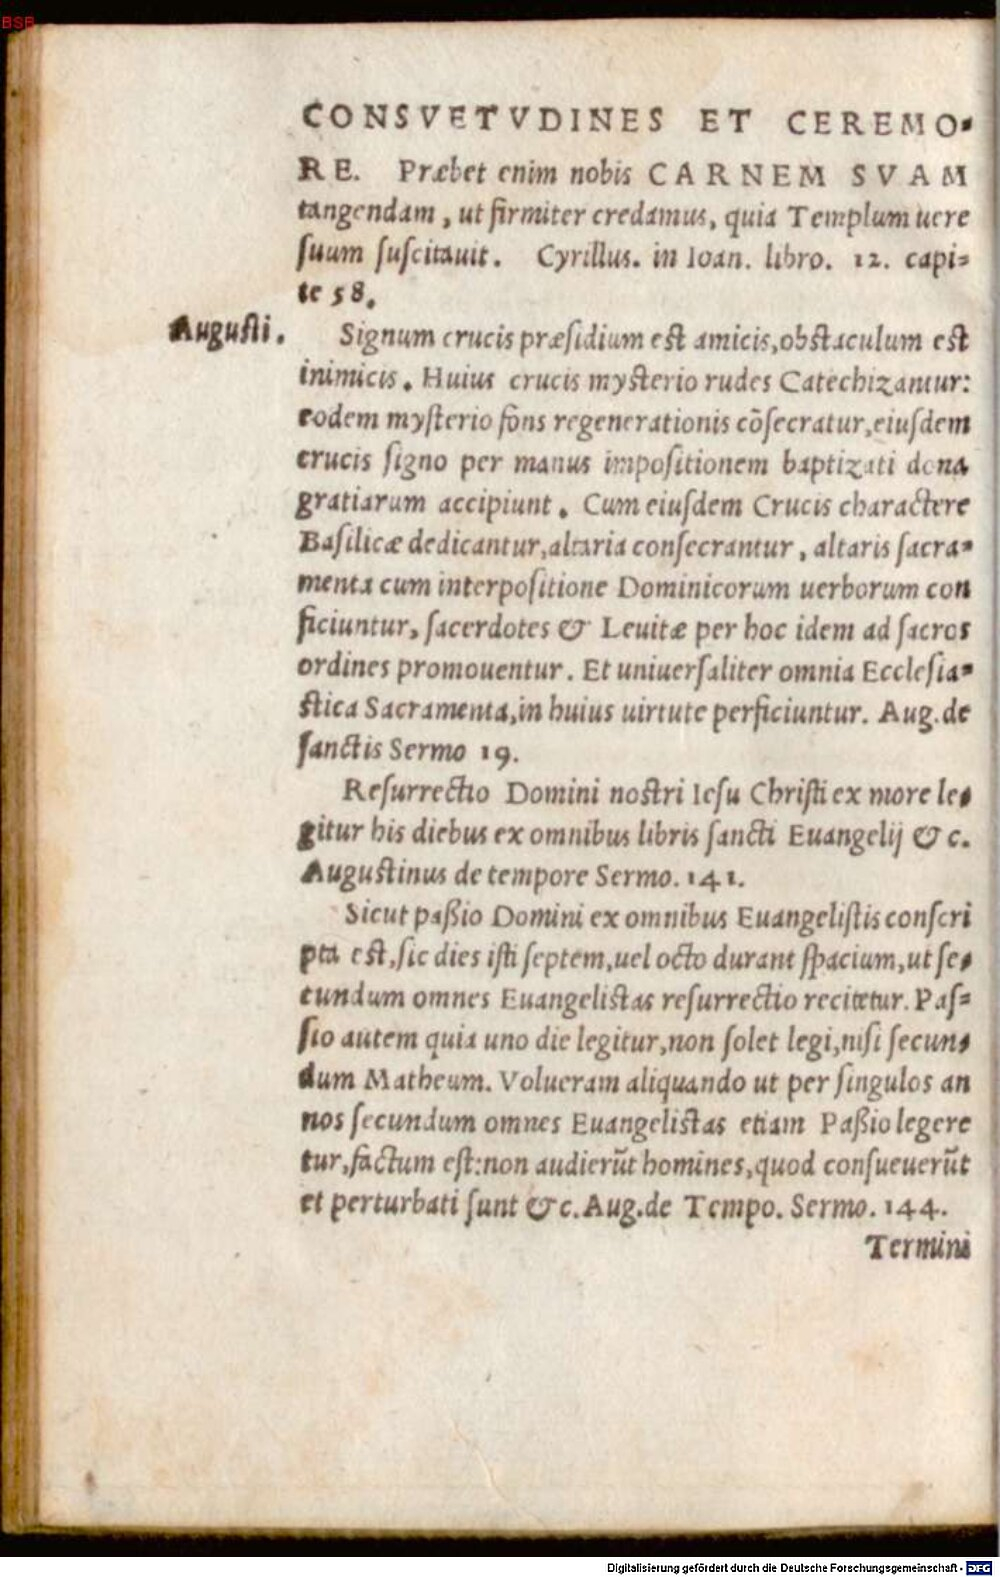 BSB
CONSVETVDINES ET CEREMO-
RE. Præbet enim nobis CARNEM SVAM
tangendam, ut firmiter credamus, quia Templum uere
ſuum ſuſcitauit. Cyrillus. in Ioan. libro. 12. capi-
te 58.
Auguſti.
Signum crucis præſidium eſt amicis, obſtaculum eſt
inimicis. Huius crucis myſterio rudes Catechizantur:
eodem myſterio fons regenerationis cõſecratur, eiuſdem
crucis ſigno per manus impoſitionem baptizati dona
gratiarum accipiunt. Cum eiuſdem Crucis charactere
Baſilicæ dedicantur, altaria conſecrantur, altaris ſacra-
menta cum interpoſitione Dominicorum uerborum con
ficiuntur, ſacerdotes & Leuitæ per hoc idem ad ſacros
ordines promouentur. Et uniuerſaliter omnia Eccleſia-
ſtica Sacramenta, in huius uirtute perficiuntur. Aug. de
ſanctis Sermo 19.
Reſurrectio Domini noſtri Ieſu Chriſti ex more le-
gitur his diebus ex omnibus libris ſancti Euangelij & c.
Auguſtinus de tempore Sermo. 141.
Sicut paßio Domini ex omnibus Euangeliſtis conſcri
pta eſt, ſic dies iſti ſeptem, uel octo durant ſpacium, ut ſe-
cundum omnes Euangeliſtas reſurrectio recitetur. Paſ-
ſio autem quia uno die legitur, non ſolet legi, niſi ſecun-
dum Matheum. Volueram aliquando ut per ſingulos an
nos ſecundum omnes Euangeliſtas etiam Paßio legere
tur, factum eſt: non audierũt homines, quod conſueuerũt
et perturbati ſunt & c. Aug. de Tempo. Sermo. 144.
Termini
Digitalisierung gefördert durch die Deutsche Forschungsgemeinschaft - DFG